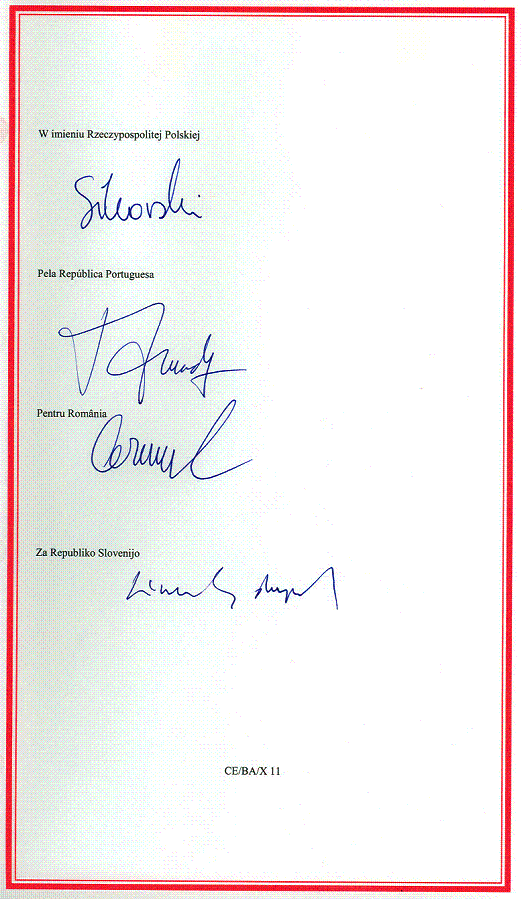 W imieniu Rzeczypospolitej Polskiej
Sikorski
Pela República Portuguesa
Pentru România
Za Republiko Slovenijo
CE/BA/X 11